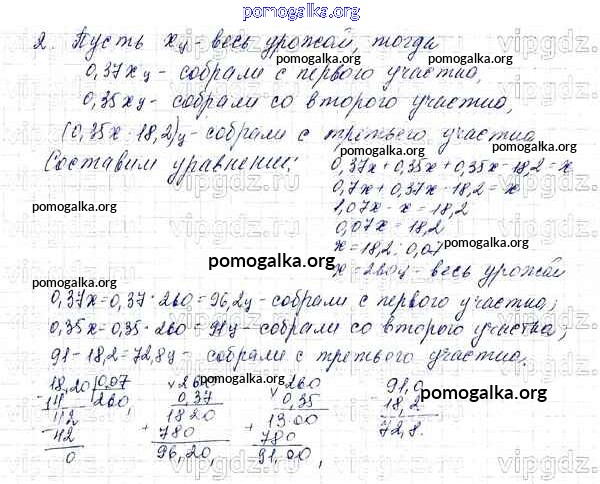 pomogalka.org
2. Пусть xц - весь урожай, тогда
0,37xц - собрали с первого участка,
0,35xц - собрали со второго участка,
(0,35x-18,2)ц - собрали с третьего участка
Составим уравнение:
pomogalka.org
0,37x+0,35x+0,35x-18,2=x
0,7x+0,37x-18,2=x
pomogalka.org
1,07x-x=18,2
pomogalka.org
0,07x=18,2
x=18,2:0,07
pomogalka.org
x=260ц - весь урожай
0,37x=0,37·260=96,2ц - собрали с первого участка;
0,35x=0,35·260=91ц - собрали со второго участка;
91-18,2=72,8ц - собрали с третьего участка.
18,20 0,07 × 260 × 260 91,0
- 14 260, 0,37 0,35 - 18,2
pomogalka.org
42 1820 1300 72,8.
- 42 + 780 + 780
0 96,20, 91,00,
pomogalka.org
vipgdz.ru